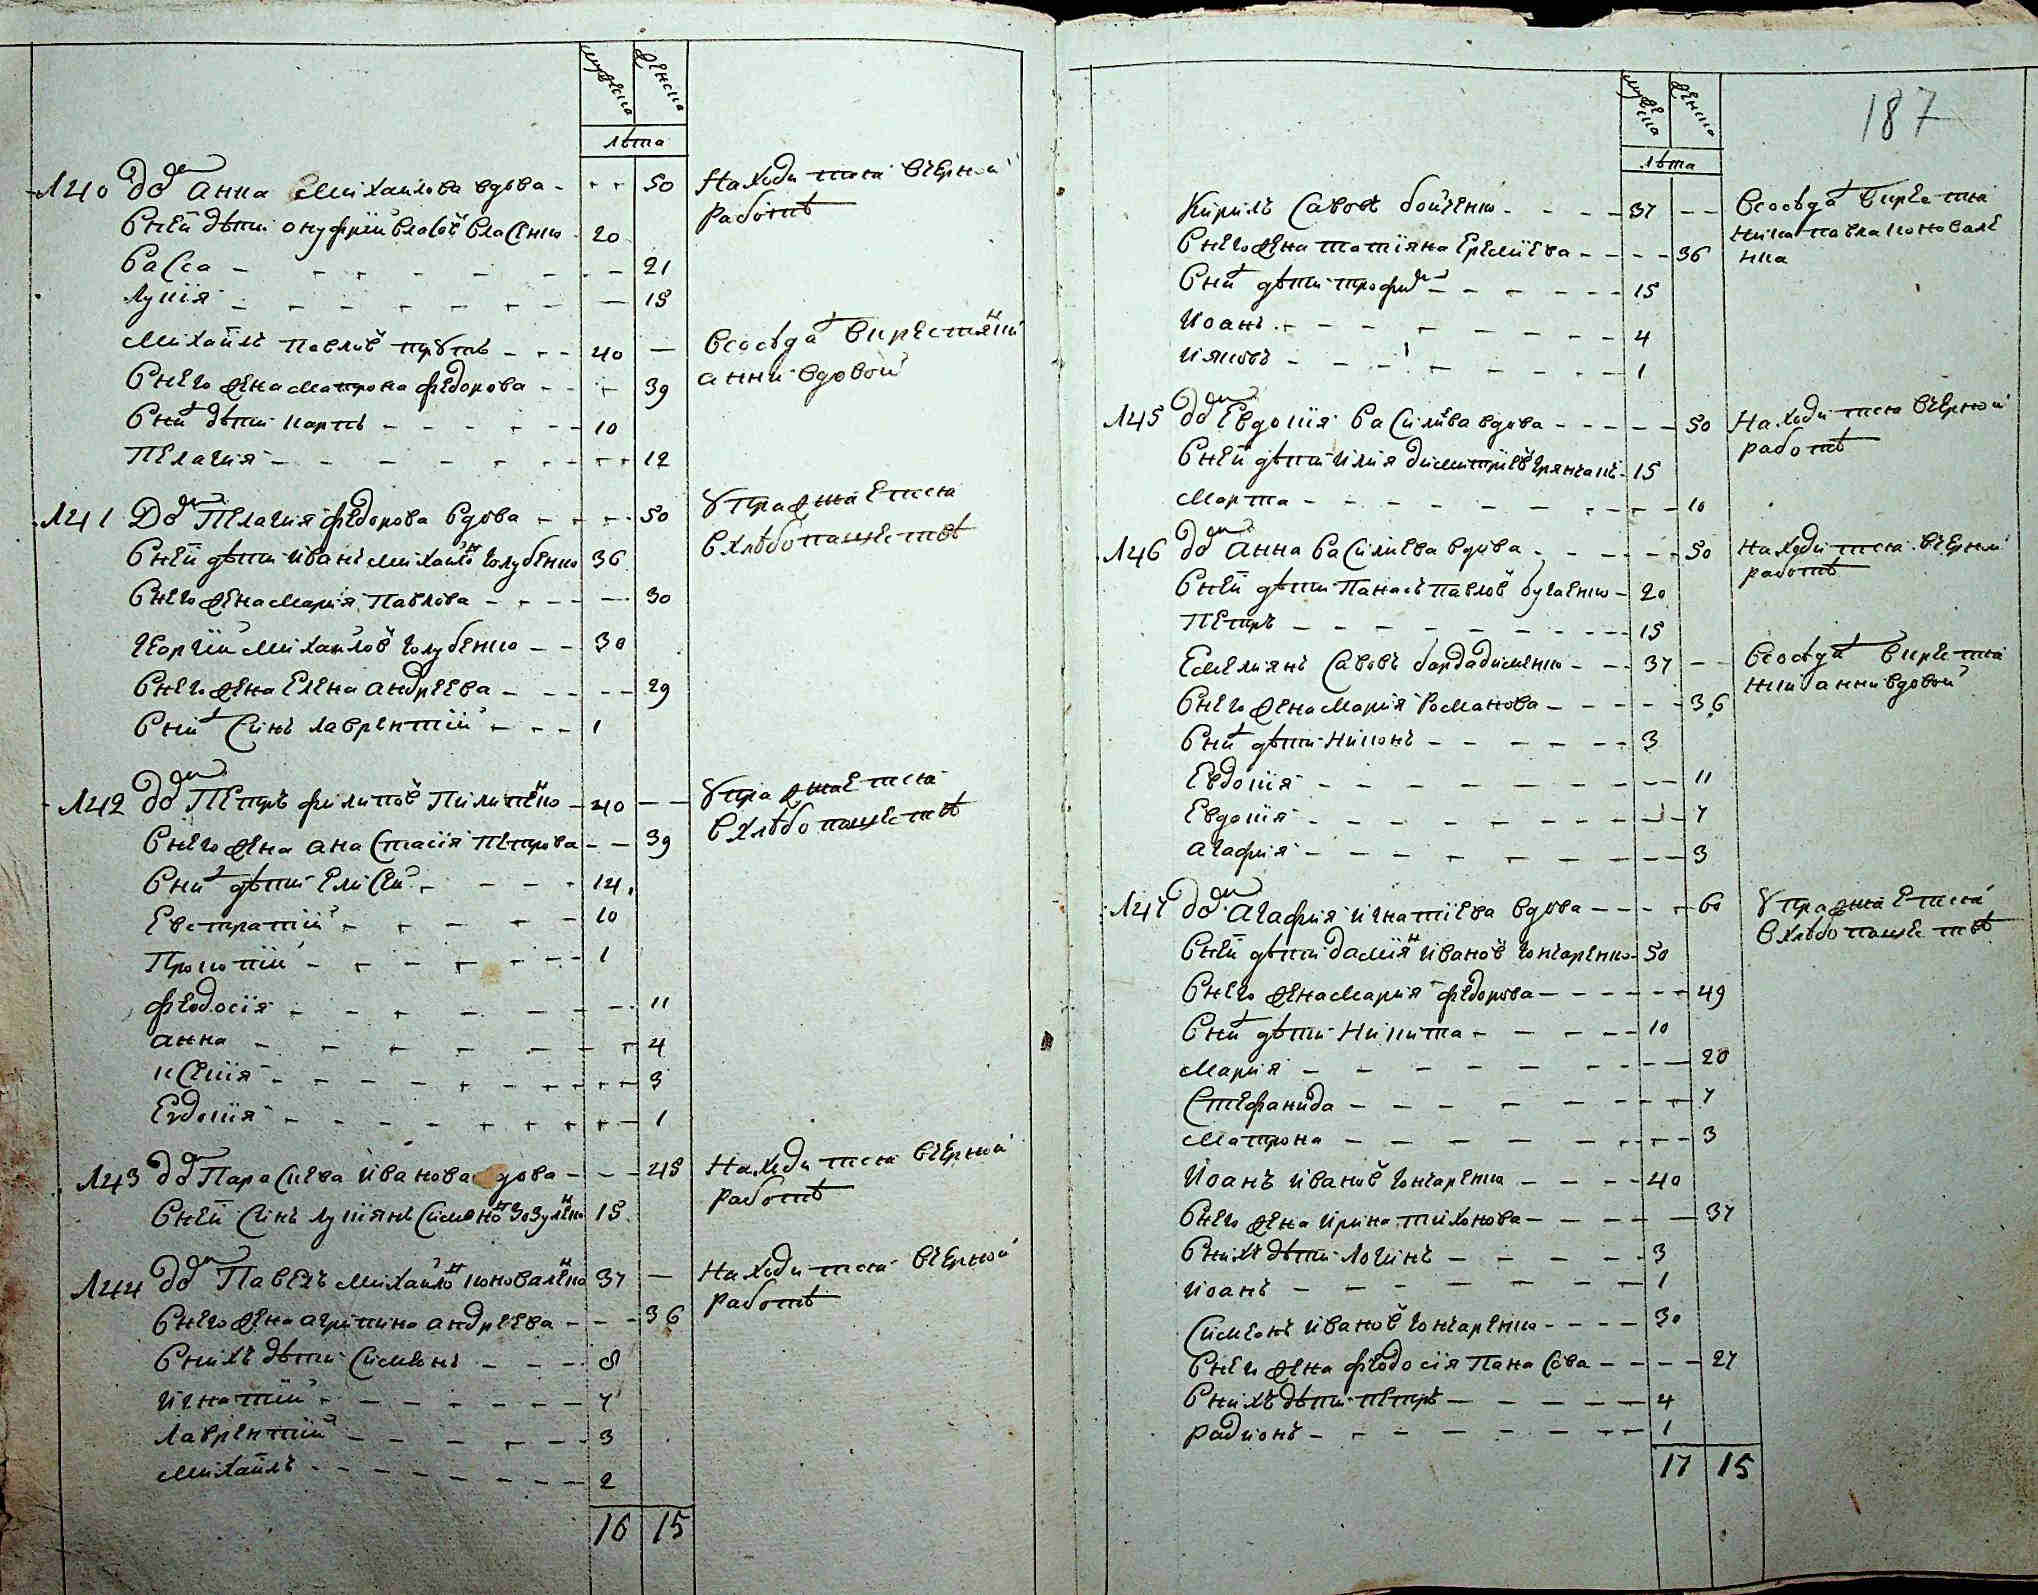 мужеска
женска
лѣта
№40 Дом Анна Михаилова вдова 50 Находитса вчерной
работѣ
Сней дѣти Онуфрий Власов Власенко 20
Васса 21
Лукія 15
Михаилъ Павлов 40 Всосѣдах вкрестянки
анни вдовой
Снего жена Матрона Федорова 39
Сних дѣти Карпъ 10
Пелагия 12
№41 Дом Пелагия Федорова вдова 50 Упражнаетса
вхлѣбопашествѣ
Сней дѣти Иванъ Михайлов Голубенко 36
Снего жена Мария Павлова 30
Георгий Михайлов Голубенко 30
Снего жена Елена Андреева 29
Сних Синъ Лаврентий 1
№42 Дом Петръ Филипов Пилипенко 40 Упражнаетса
вхлѣбопашествѣ
Снего жена Анастасія Петрова 39
Сних дѣти Елисей 14
Евстратий 10
Прокопий 1
Феодосія 11
Анна 4
Ксения 3
Евдокія 1
№43 Дом Параскева Иванова вдова 45 Находитса вчерной
работѣ
Сней Синъ Лукіянъ Симонов Зозуленко 15
№44 Дом Павелъ Михайлов Коноваленко 37 Находитса вчерной
работѣ
Снего жена Агрипина Андреева 36
Снихъ дѣти Симеонъ 8
Игнатий 7
Лаврентий 3
Михаилъ 2
16 15
187
мужеска
женска
лѣта
Кирилъ Савов Бойченко 37 Всосѣдах вкрестя
нина Павла Коновале
нка
Снего жена Татияна Еремиева 36
Сних дѣти Трофим 15
Иоанъ 4
Ияковъ 1
№45 Дом Евдокія Василиева вдова 50 Находитса вчерной
работѣ
Сней дѣти Илия Димитриев 15
Марта 10
№46 Дом Анна Василиева вдова 50 Находитса вчерной
работѣ
Сней дѣти Панасъ Павлов Бугаенко 20
Петръ 15
Емелиянъ Савовъ Бардадименко 37 Всосѣдах вкрестя
нки анни вдовой
Снего жена Мария Романова 36
Сних дѣти Никонъ 3
Евдокія 11
Евдокія 7
Агафия 3
№47 Дом Агафия Игнатиева вдова 60 Упражнаетса
вхлѣбопашествѣ
Сней дѣти Дамиян Иванов Гончаренко 50
Снего жена Мария Федорова 49
Сних дѣти Никита 10
Мария 20
Стефанида 7
Матрона 3
Иоанъ Иванов Гончаренко 40
Снего жена Ирина Тихонова 37
Снихъ дѣти Логинъ 3
Иоанъ 1
Симеонъ Иванов Гончаренко 30
Снего жена Феодосія Панасова 27
Снихъ дѣти Петръ 4
Радионъ 1
17 15